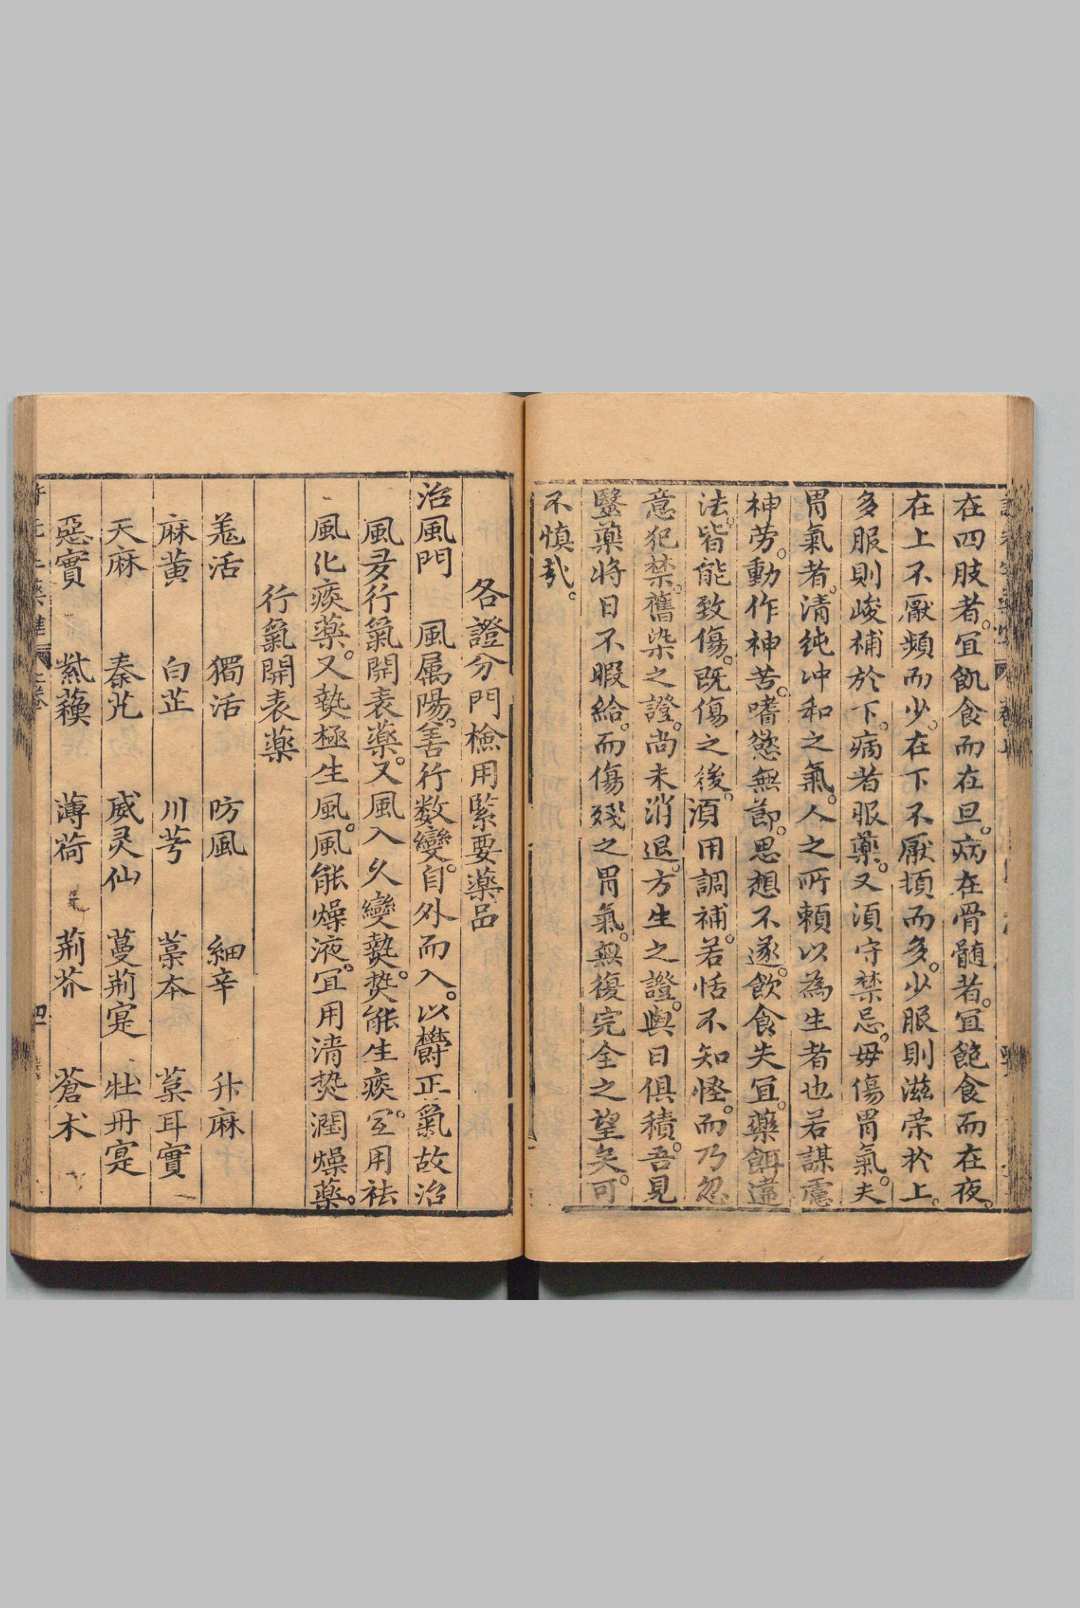 在四肢者。宜飢食而在旦。病在骨髄者。宜飽食而在夜。
在上不厭頻而少。在下不厭頓而多。少服則滋荣於上。
多服則峻補於下。病者服藥。又湏守禁忌。毋傷胃氣。夫
胃氣者。清純冲和之氣。人之所頼以為生者也若謀慮
神劳。動作神苦。嗜慾無節。思想不遂。飲食失宜。藥餌違
法。皆能致傷。既傷之後。湏用調補。若恬不知恠。而乃忽
意犯禁。舊染之證。尚未消退。方生之證。與日俱積。吾見
醫藥将日不暇給。而傷殘之胃氣。無復完全之望矣。可
不慎哉。
各證分門檢用緊要藥品
治風門　風属陽。善行数變。自外而入。以欝正氣故治
風多行氣開表藥。又風入久變熱。热能生痰。宜用祛
風化痰藥。又熱極生風。風能燥液。宜用清热潤燥藥。
行氣開表藥
羗活　獨活　防風　細辛　升麻
麻黄　白芷　川芎　藁本　葈耳實
天麻　秦艽　威灵仙　蔓荆寔　牡丹寔
惡實　紫蘓　薄荷　荊芥　蒼术